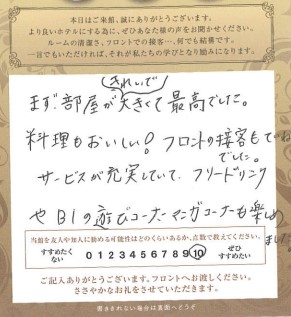 本日はご来館、誠にありがとうございます。
より良いホテルにする為に、ぜひあなた様の声をお聞かせください。
ルームの清潔さ、フロントでの接客…、何でも結構です。
一言でもいただければ、それが私たちの学びとなり励みになります。
きれいで
まず部屋が大きくて最高でした。
料理もおいしい! フロントの接客もていねい
でした。
サービスが充実していて、フリードリンク
や B1の遊びコーナーマンガコーナーも楽しめ
ました
当館を友人や知人に勧める可能性はどのくらいあるか、点数で教えてください。
すすめたくない 0 1 2 3 4 5 6 7 8 9 10 ぜひすすめたい
ご記入ありがとうございます。フロントへお渡しください。
ささやかなお礼をさせていただきます。
書ききれない場合は裏面へどうぞ